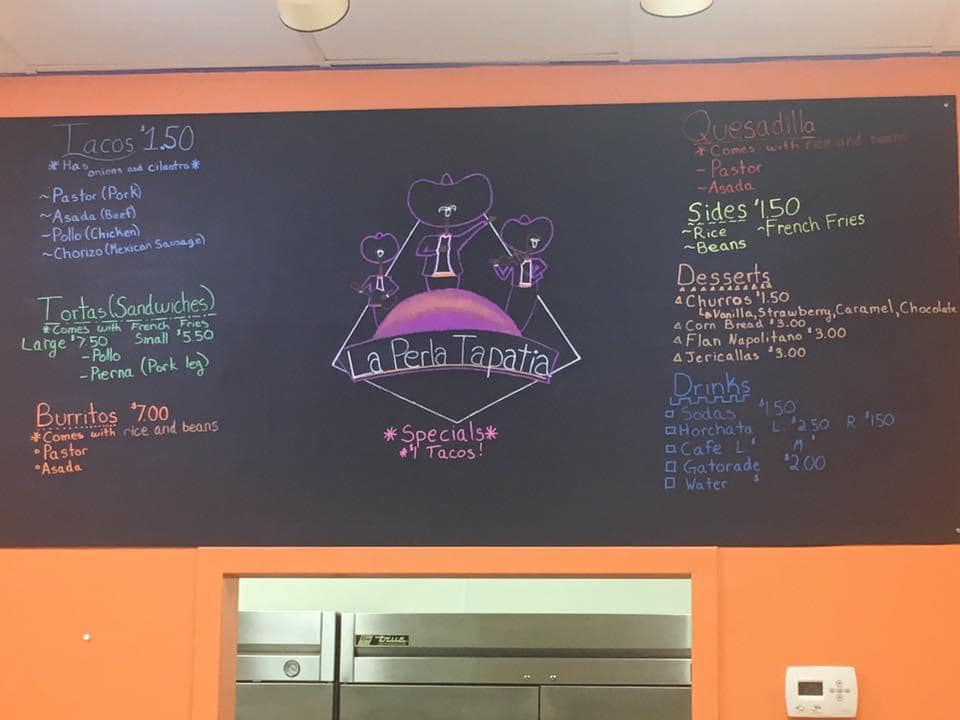 Tacos $1.50
*Has onions and cilantro*
~Pastor (Pork)
~Asada (Beef)
~Pollo (Chicken)
~Chorizo (Mexican Sausage)
Tortas (Sandwiches)
*Comes with French Fries
Large $7.50 Small $5.50
-Pollo
-Pierna (Pork leg)
Burritos $7.00
*Comes with rice and beans
°Pastor
°Asada
La Perla Tapatia
*Specials*
*$1 Tacos!
Quesadilla
*Comes with rice and beans
-Pastor
-Asada
Sides $1.50
~Rice ~French Fries
~Beans
Desserts
Churros $1.50
Vanilla, Strawberry, Caramel, Chocolate
Corn Bread $3.00
Flan Napolitano $3.00
Jericallas $3.00
Drinks
Sodas $1.50
Horchata L $2.50 R $1.50
Cafe L $ M $
Gatorade $2.00
Water $
true